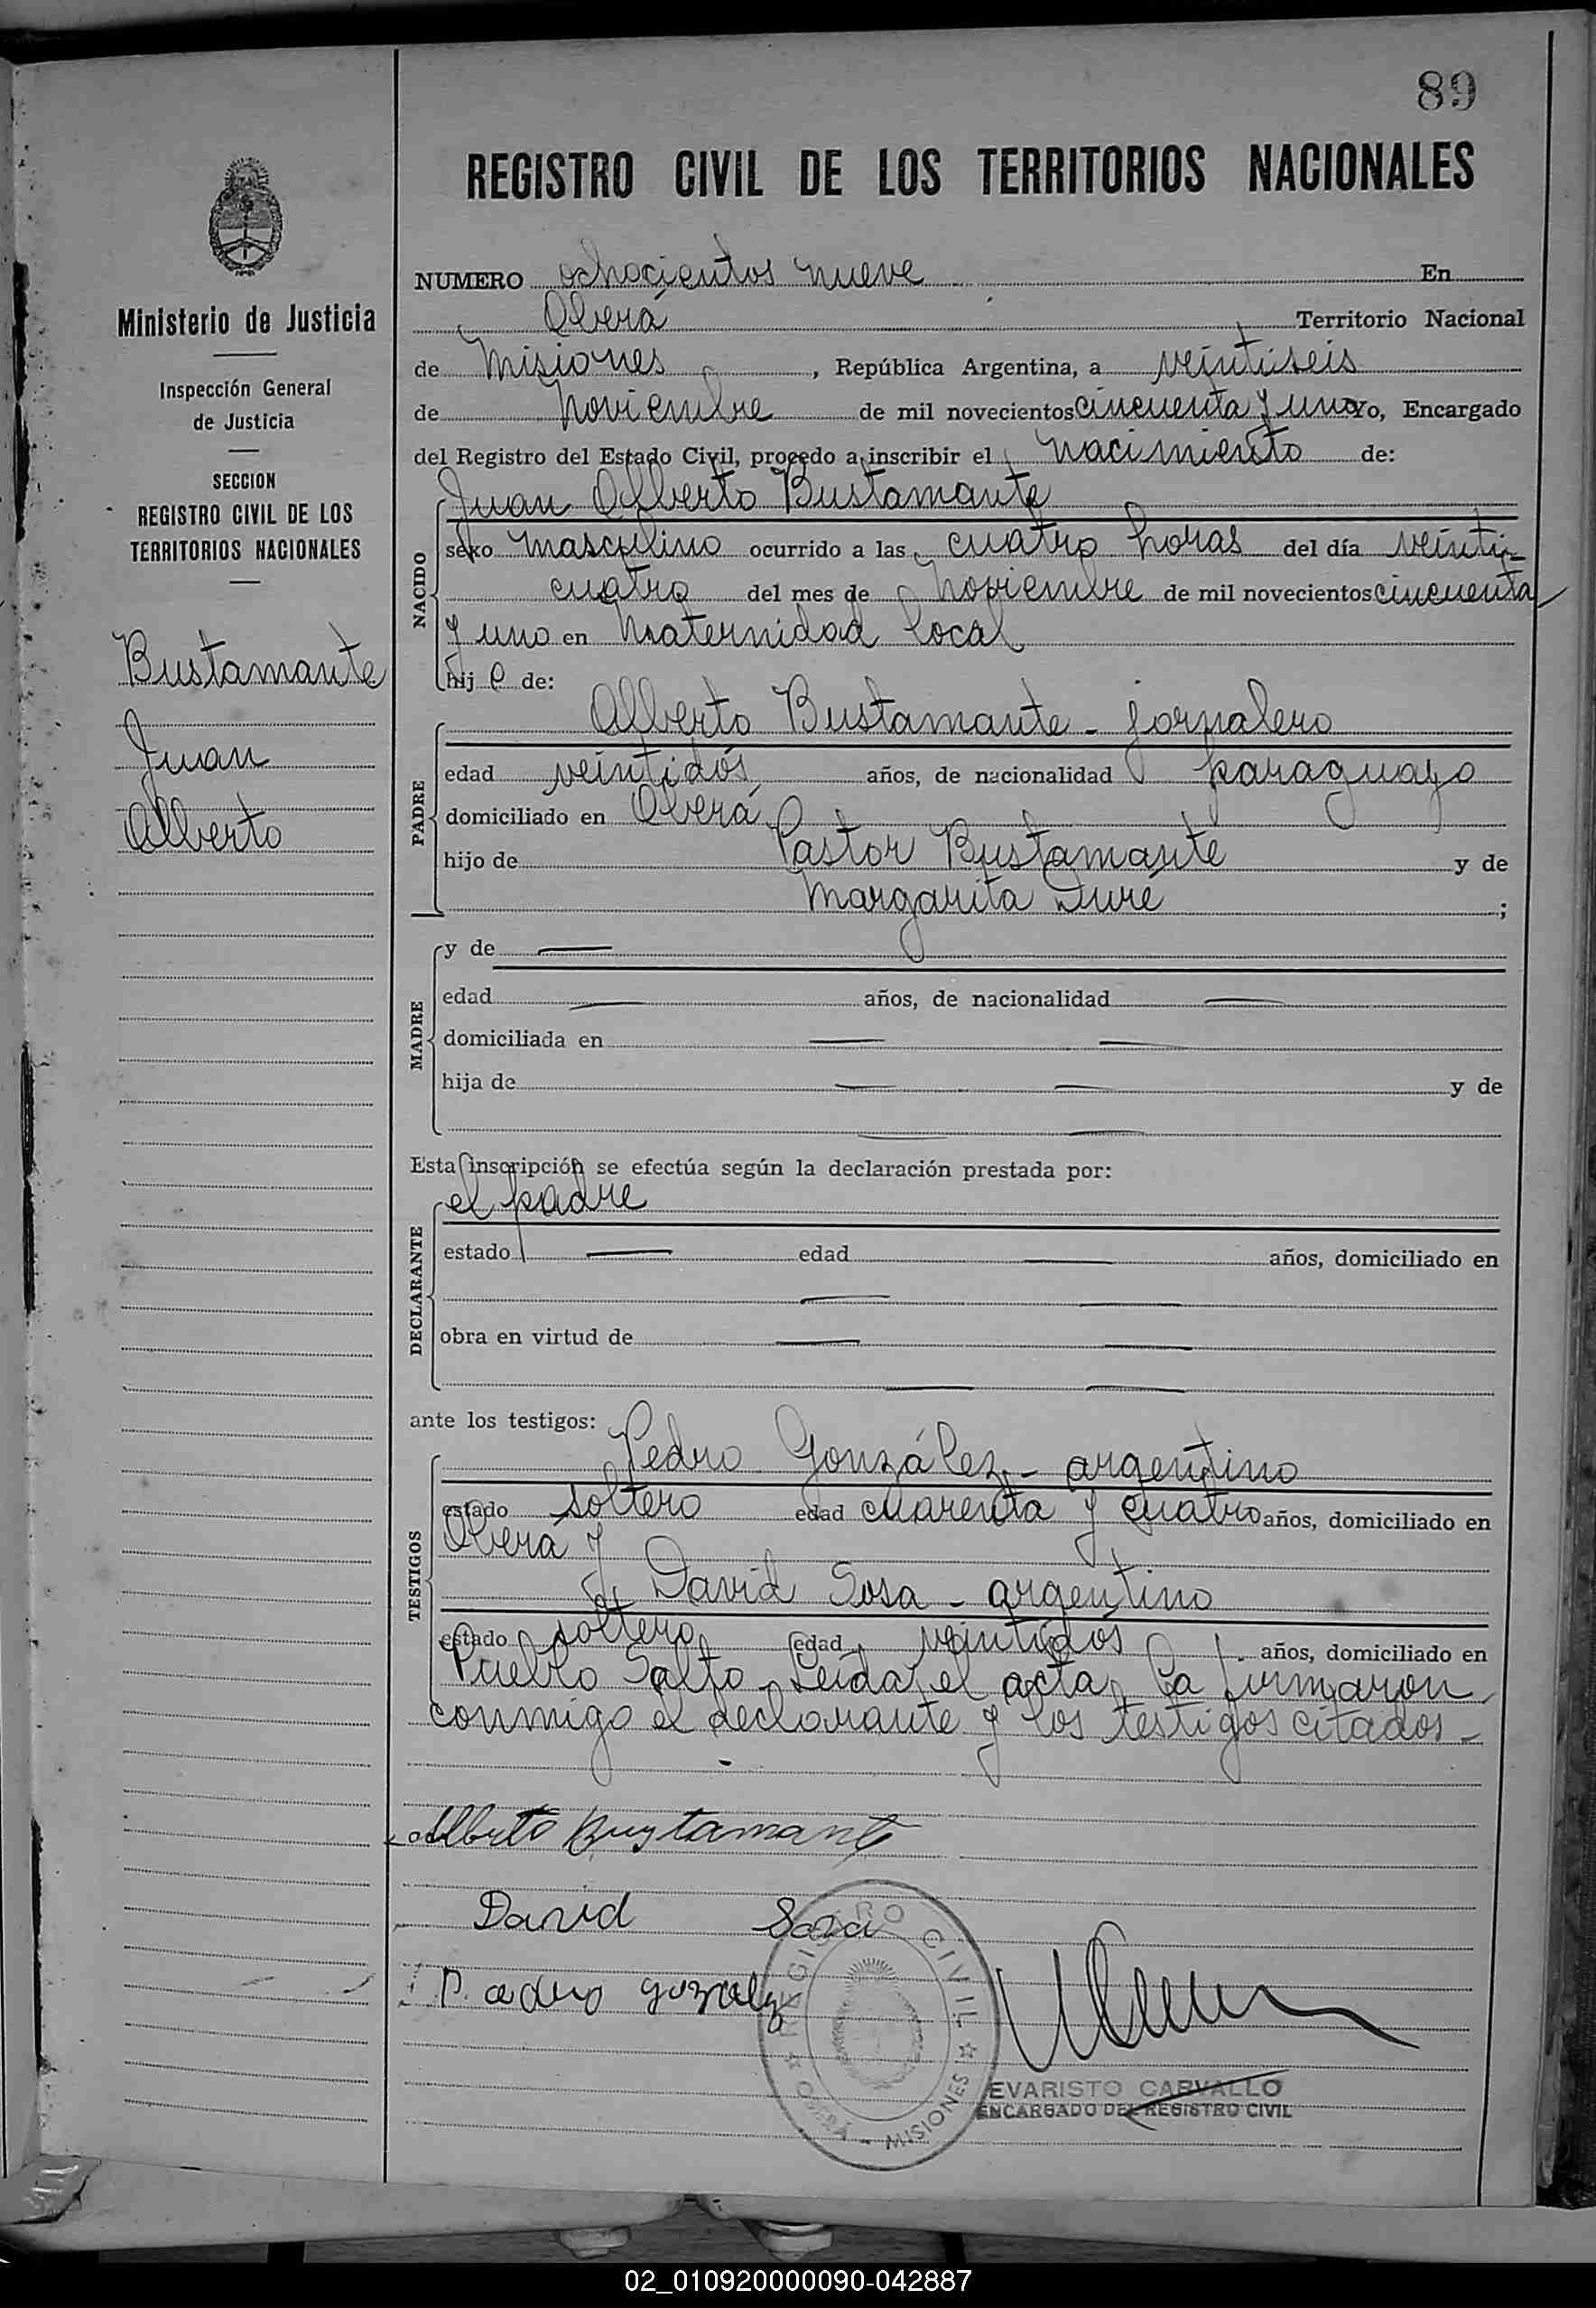 89
REGISTRO CIVIL DE LOS TERRITORIOS NACIONALES
Ministerio de Justicia
Inspección General
de Justicia
SECCION
REGISTRO CIVIL DE LOS
TERRITORIOS NACIONALES
Bustamante
Juan
Alberto
NUMERO ochocientos nueve En
Oberá Territorio Nacional
de Misiones, República Argentina, a veintiseis
de Noviembre de mil novecientos cincuenta y uno Yo, Encargado
del Registro del Estado Civil, procedo a inscribir el nacimiento de:
NACIDO
Juan Alberto Bustamante
sexo masculino ocurrido a las cuatro horas del día veinti-
cuatro del mes de Noviembre de mil novecientos cincuenta
y uno en Maternidad local
hij o de:
PADRE
Alberto Bustamante - jornalero
edad veintidós años, de nacionalidad paraguayo
domiciliado en Oberá
hijo de Pastor Bustamante y de
Margarita Duré ;
MADRE
y de —
edad — años, de nacionalidad —
domiciliada en — —
hija de — — y de
— —
Esta inscripción se efectúa según la declaración prestada por:
DECLARANTE
el padre
estado — edad — años, domiciliado en
— —
obra en virtud de — —
— —
ante los testigos:
TESTIGOS
Pedro González - argentino
estado soltero edad cuarenta y cuatro años, domiciliado en
Oberá y
David Sosa - argentino
estado soltero edad veintidós años, domiciliado en
Pueblo Salto - Leída el acta, la firmaron
conmigo el declarante y los testigos citados -
Alberto Bustamante
David Sosa
P. edro gonzalez
REGISTRO CIVIL
OBERA - MISIONES
EVARISTO CARVALLO
ENCARGADO DEL REGISTRO CIVIL
02_010920000090-042887